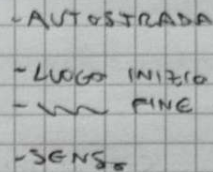 - AUTOSTRADA
- LUOGO INIZIO
- 〃 FINE
- SENSO